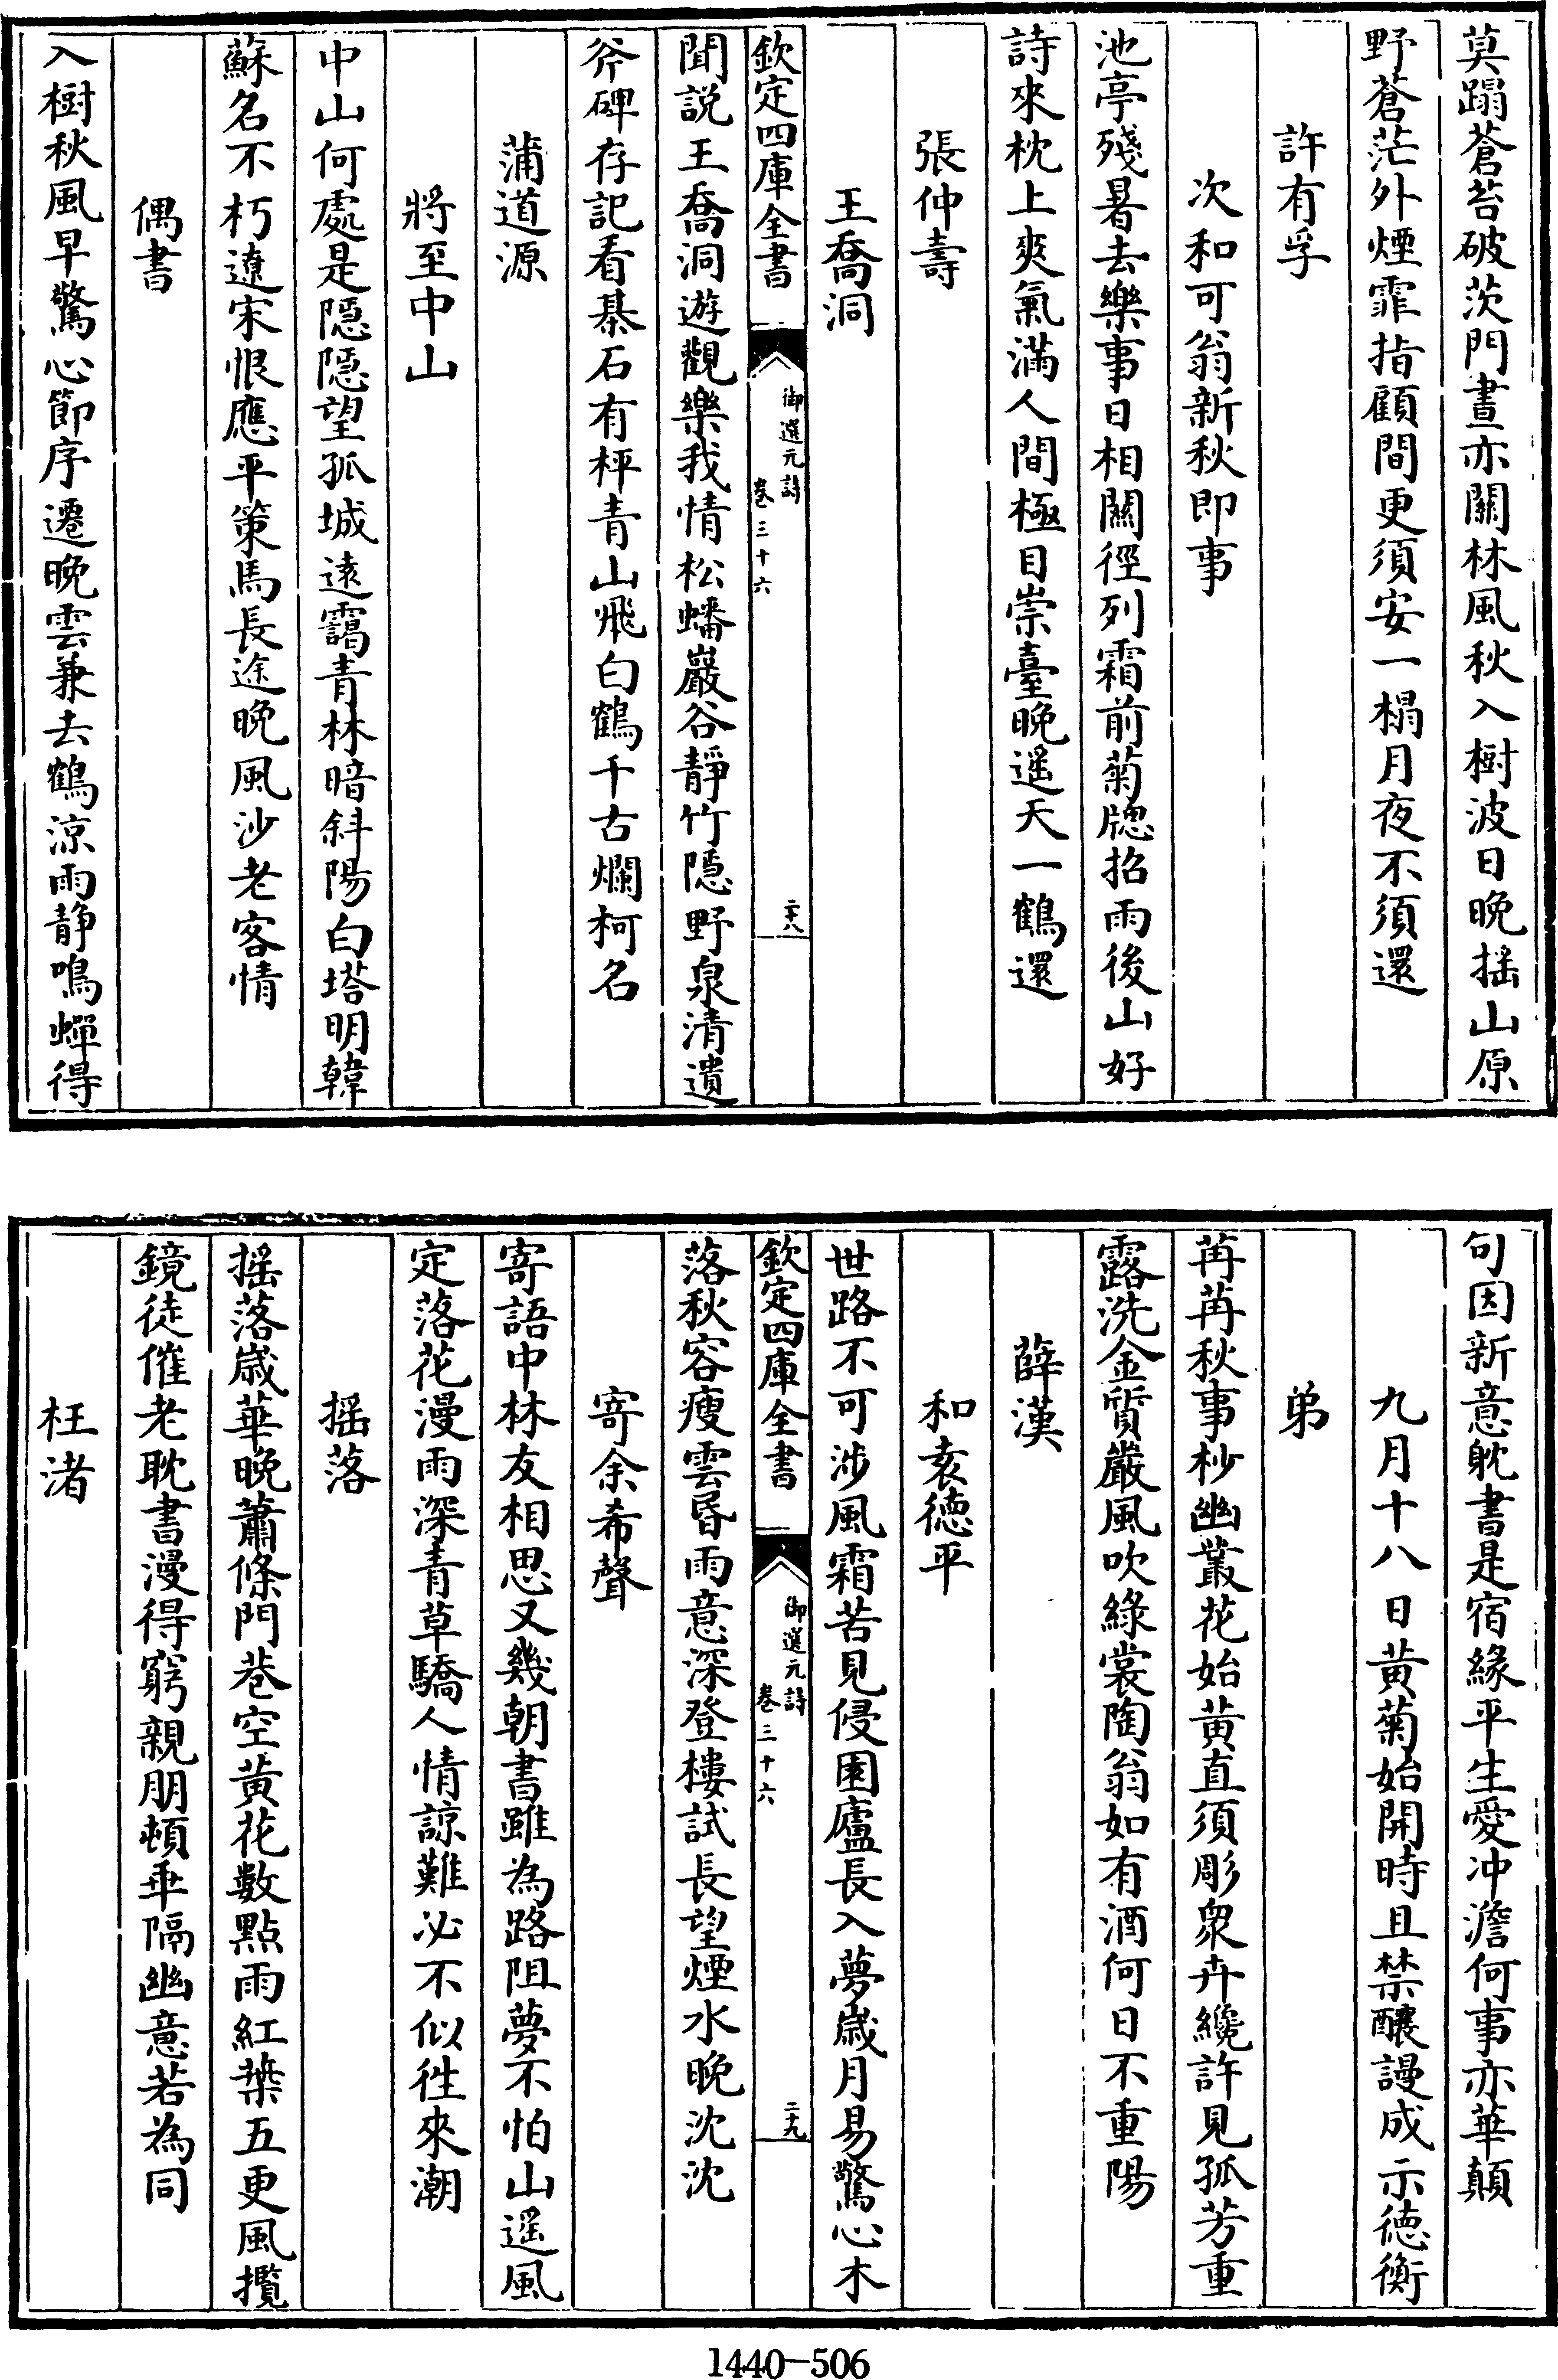 莫蹋蒼苔破茨門晝亦關林風秋入樹波日晚搖山原
野蒼茫外煙霏指顧間更須安一榻月夜不須還
許有孚
次和可翁新秋即事
池亭殘暑去樂事日相關徑列霜前菊牕招雨後山好
詩來枕上爽氣滿人間極目崇臺晚遥天一鶴還
張仲壽
王喬洞
欽定四庫全書
御選元詩
卷三十六
二十八
聞説王喬洞遊觀樂我情松蟠巖谷靜竹隱野泉清遺
斧碑存記看棊石有枰青山飛白鶴千古爛柯名
蒲道源
將至中山
中山何處是隱隱望孤城遠靄青林暗斜陽白塔明韓
蘇名不朽遼宋恨應平策馬長途晚風沙老客情
偶書
入樹秋風早驚心節序遷晚雲兼去鶴涼雨静鳴蟬得
句因新意躭書是宿緣平生愛冲澹何事亦華顛
九月十八日黄菊始開時且禁釀謾成示德衡
弟
苒苒秋事杪幽叢花始黄直須彫衆卉纔許見孤芳重
露洗金質嚴風吹綠裳陶翁如有酒何日不重陽
薛漢
和袁德平
世路不可涉風霜苦見侵園廬長入夢歲月易驚心木
欽定四庫全書
御選元詩
卷三十六
二十九
落秋容瘦雲昏雨意深登樓試長望煙水晚沈沈
寄余希聲
寄語中林友相思又幾朝書雖為路阻夢不怕山遥風
定落花漫雨深青草驕人情諒難必不似徃來潮
摇落
摇落歲華晚蕭條門巷空黄花數點雨紅葉五更風攬
鏡徒催老耽書漫得窮親朋頓乖隔幽意若為同
枉渚
1440-506